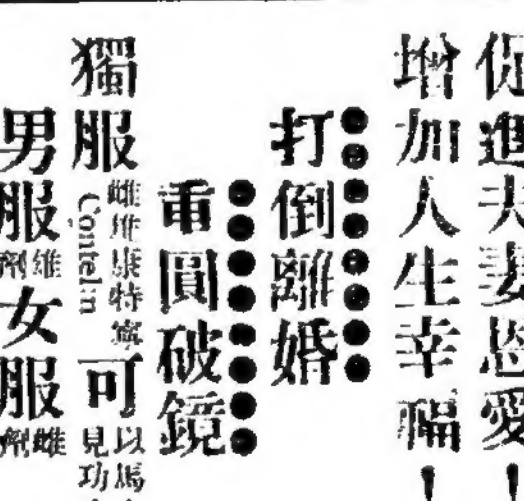 促進夫妻恩愛！
增加人生幸福！
打倒離婚
重圓破鏡
獨服
雌維康特寧
Contelin
可
以馬
見功
男服
雄
劑
女服
雌
劑